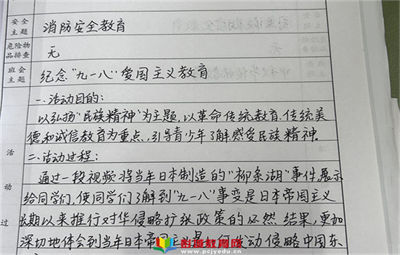 安全主题 消防安全教育
危险物品排查 无
班会主题 纪念"九一八"爱国主义教育
一.活动目的:
以弘扬"民族精神"为主题,以革命传统教育、传统美
德和诚信教育为重点,引导青少年了解感受民族精神.
二.活动过程:
通过一段视频将当年日本制造的"柳条湖"事件展示
给同学们,使同学们了解到"九一八"事变是日本帝国主义
长期以来推行对华侵略扩张政策的必然结果,更加
深切地体会到当年日本帝国主义是
发动侵略中国东
活
动
过